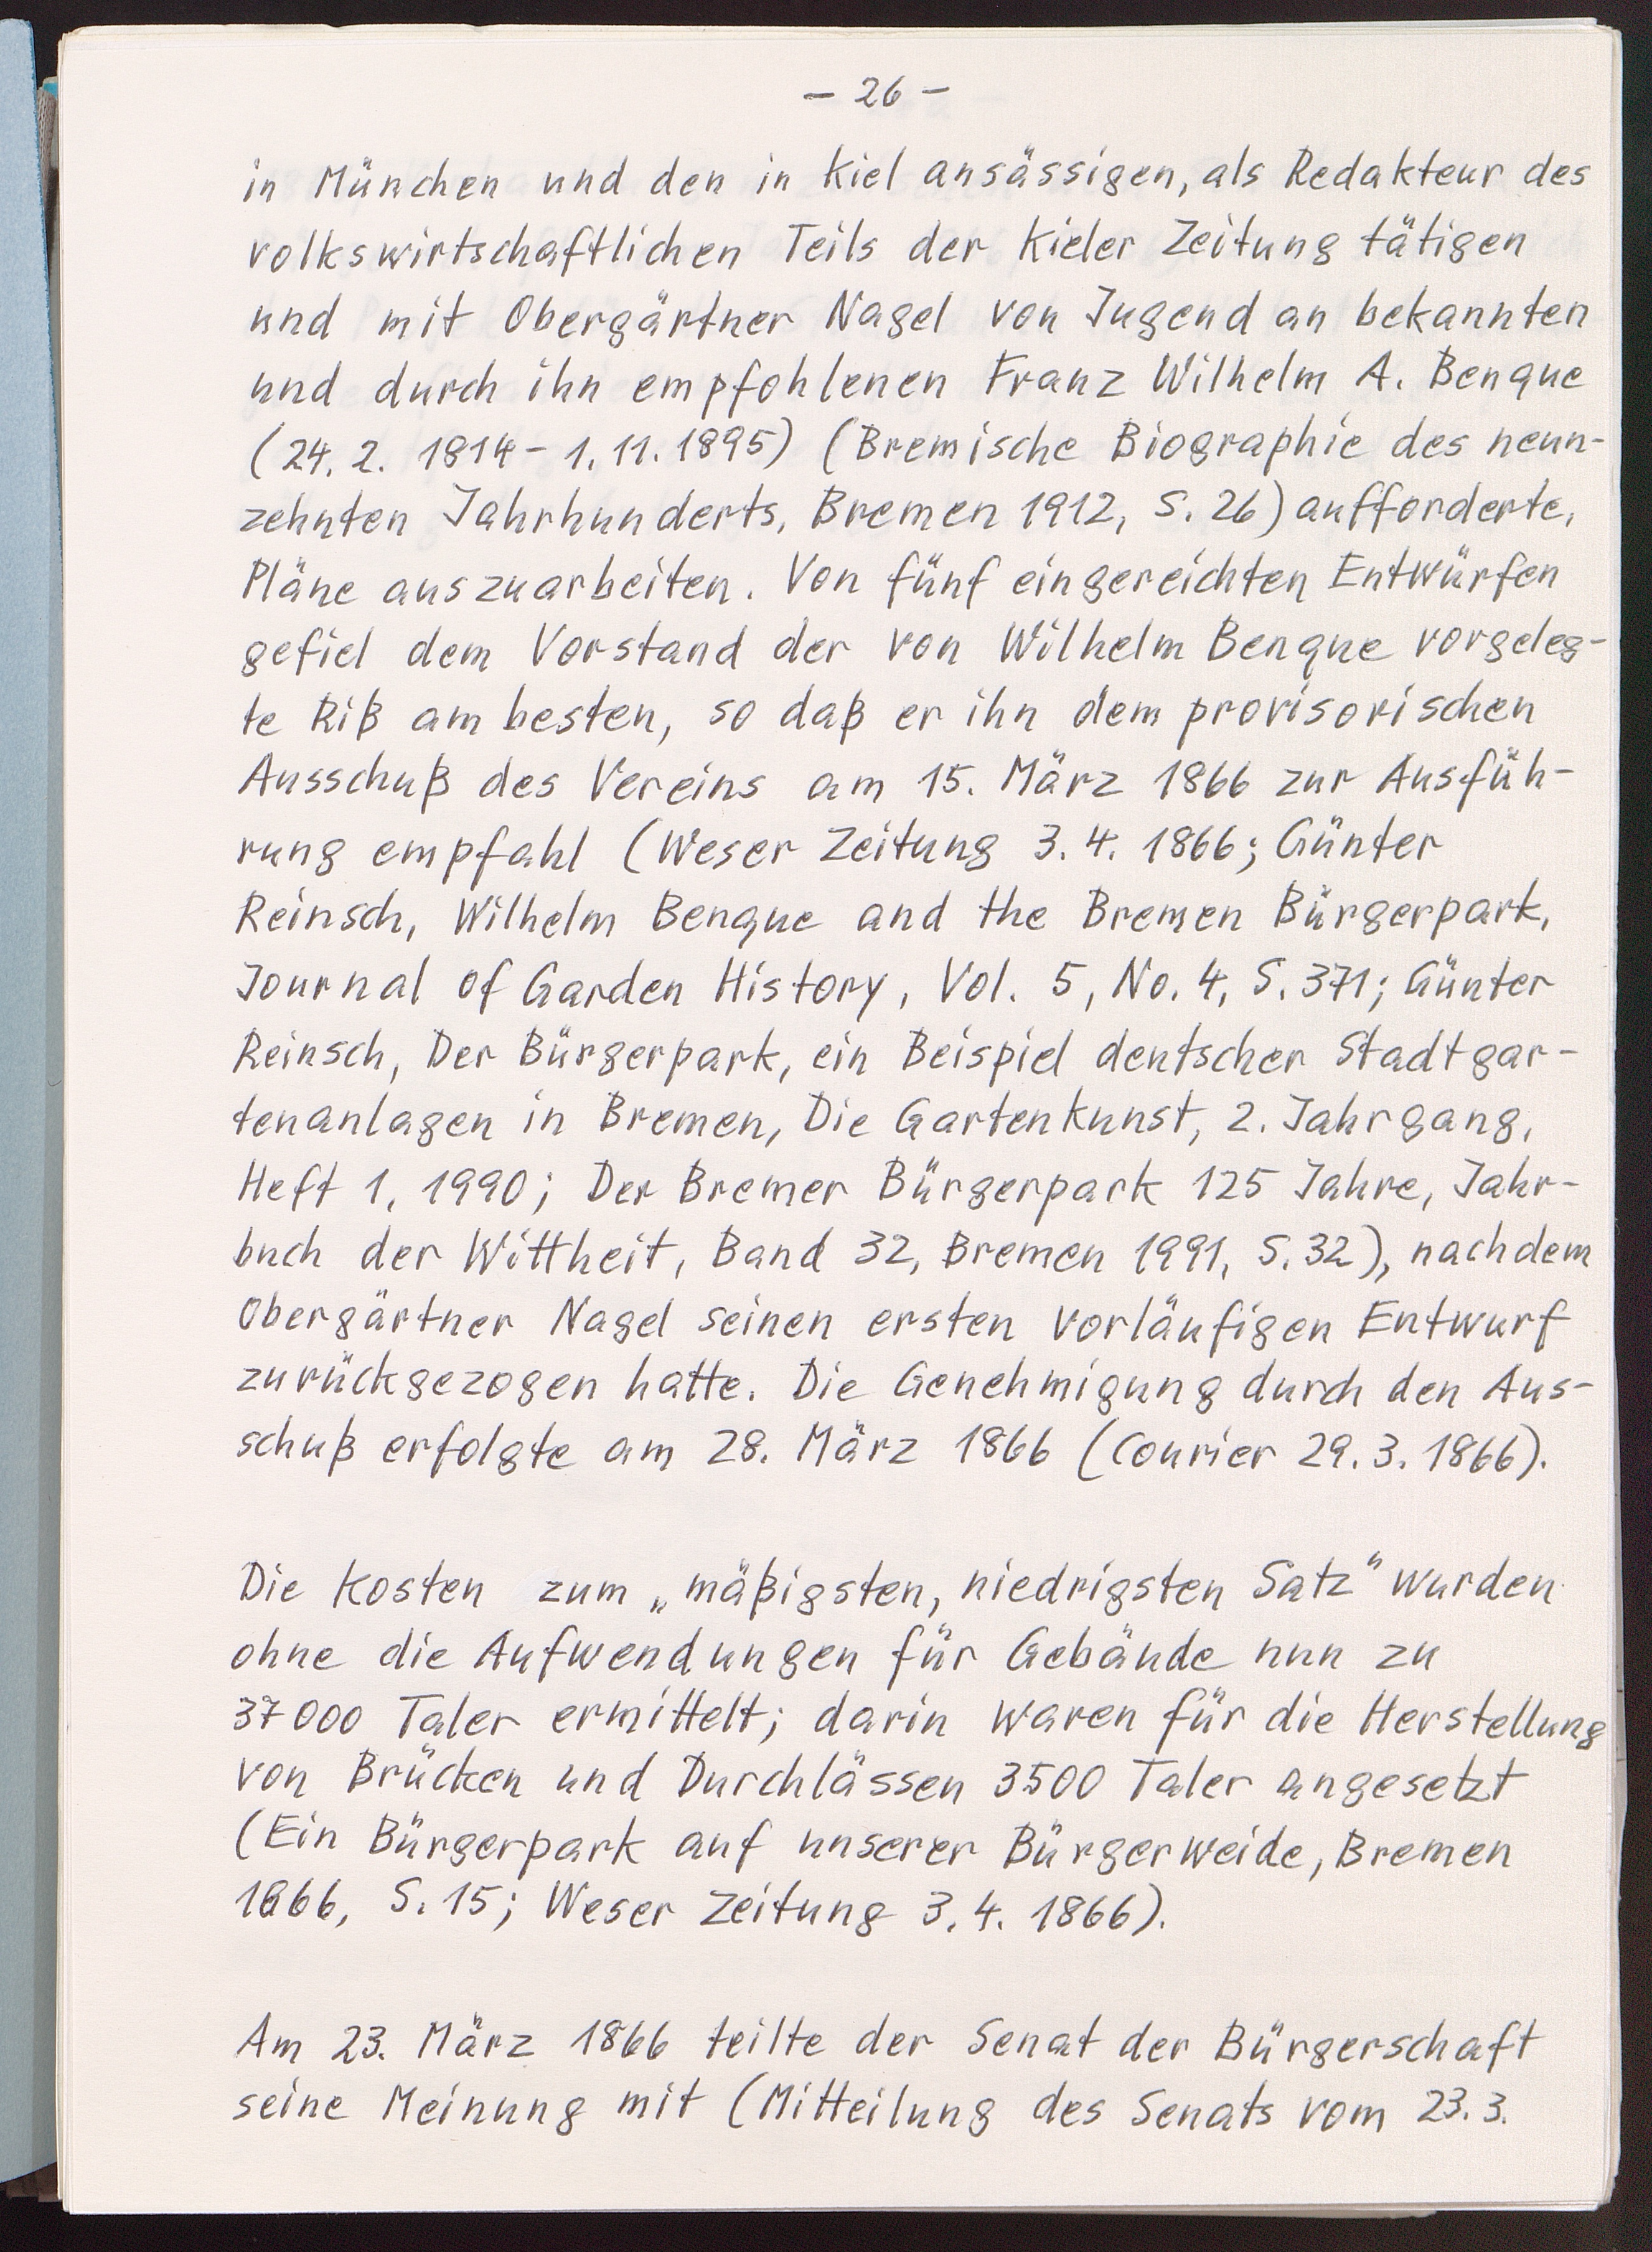 – 26 –
in München und den in Kiel ansässigen, als Redakteur des
volkswirtschaftlichen Teils der Kieler Zeitung tätigen
und mit Obergärtner Nagel von Jugend an bekannten
und durch ihn empfohlenen Franz Wilhelm A. Benque
(24. 2. 1814 – 1. 11. 1895) (Bremische Biographie des neun-
zehnten Jahrhunderts, Bremen 1912, S. 26) aufforderte,
Pläne auszuarbeiten. Von fünf eingereichten Entwürfen
gefiel dem Vorstand der von Wilhelm Benque vorgeleg-
te Riß am besten, so daß er ihn dem provisorischen
Ausschuß des Vereins am 15. März 1866 zur Ausfüh-
rung empfahl (Weser Zeitung 3. 4. 1866; Günter
Reinsch, Wilhelm Benque and the Bremen Bürgerpark,
Journal of Garden History, Vol. 5, No. 4, S. 371; Günter
Reinsch, Der Bürgerpark, ein Beispiel deutscher Stadtgar-
tenanlagen in Bremen, Die Gartenkunst, 2. Jahrgang,
Heft 1, 1990; Der Bremer Bürgerpark 125 Jahre, Jahr-
buch der Wittheit, Band 32, Bremen 1991, S. 32), nachdem
Obergärtner Nagel seinen ersten vorläufigen Entwurf
zurückgezogen hatte. Die Genehmigung durch den Aus-
schuß erfolgte am 28. März 1866 (Courier 29. 3. 1866).
Die Kosten zum „mäßigsten, niedrigsten Satz" wurden
ohne die Aufwendungen für Gebäude nun zu
37000 Taler ermittelt; darin waren für die Herstellung
von Brücken und Durchlässen 3500 Taler angesetzt
(Ein Bürgerpark auf unserer Bürgerweide, Bremen
1866, S. 15; Weser Zeitung 3. 4. 1866).
Am 23. März 1866 teilte der Senat der Bürgerschaft
seine Meinung mit (Mitteilung des Senats vom 23. 3.